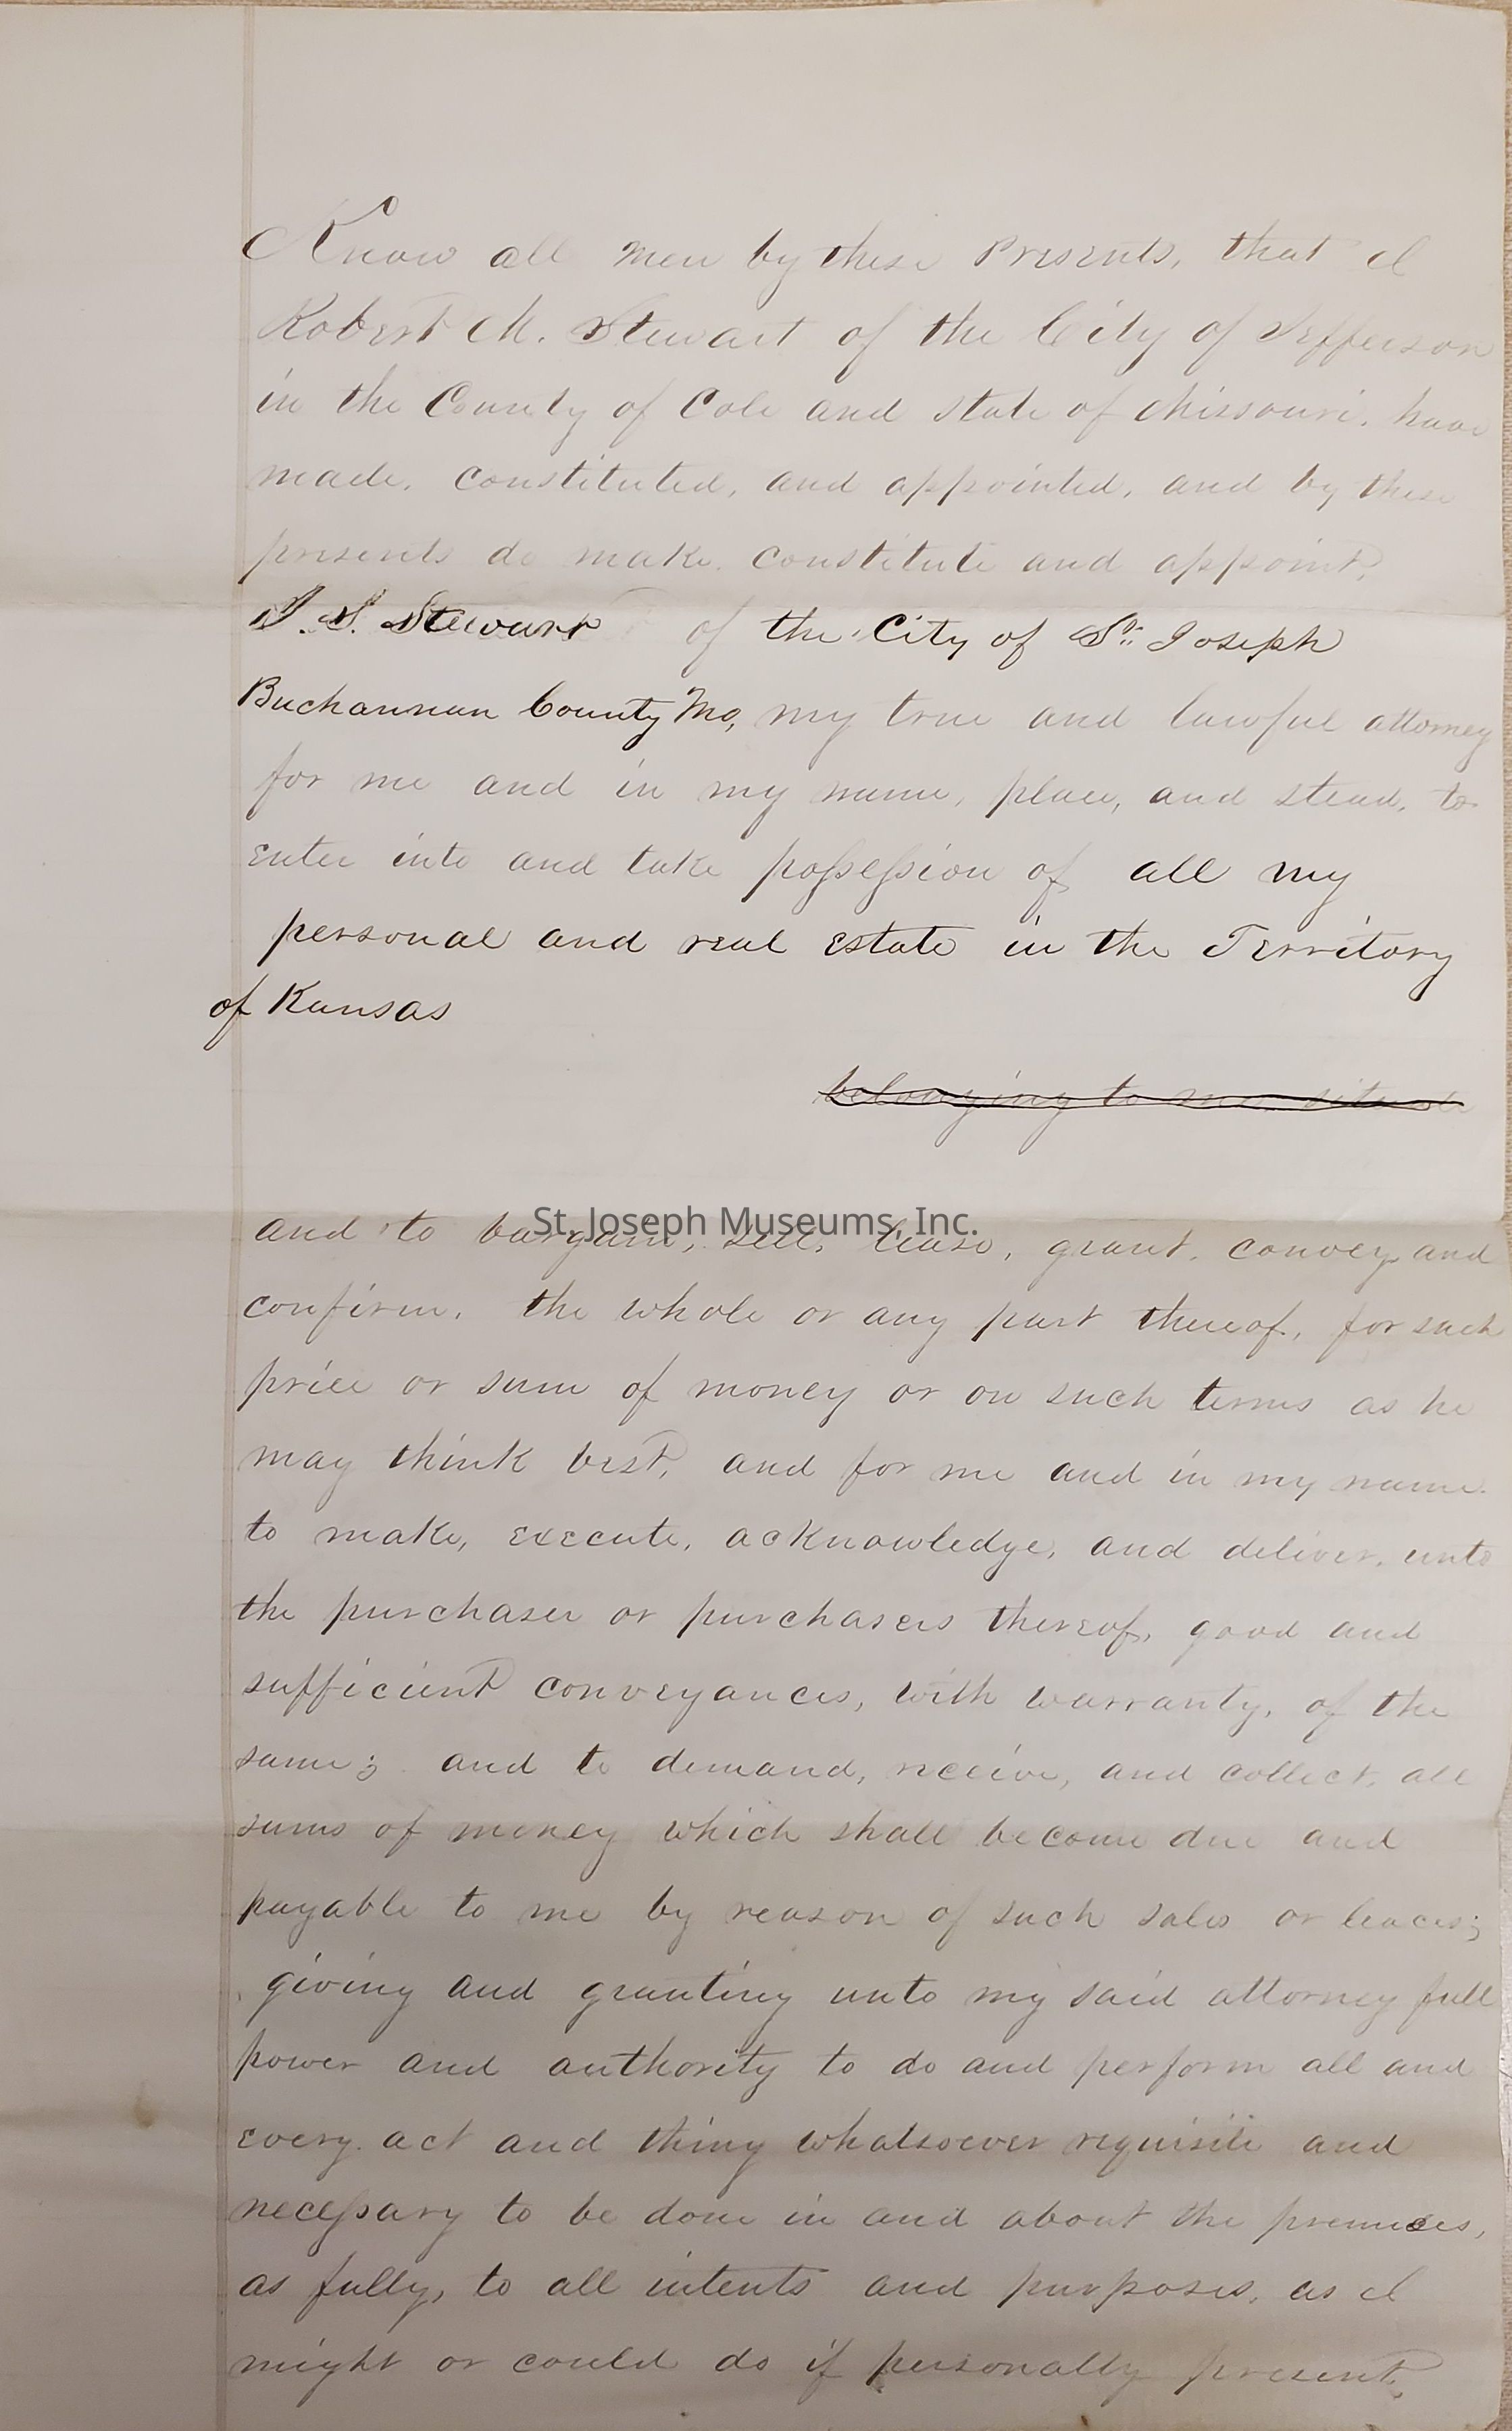 Know all men by these Presents, that I
Robert M. Stewart of the City of Jefferson
in the County of Cole and State of Missouri, have
made, constituted, and appointed, and by these
presents do make, constitute and appoint,
J. S. Stewart of the City of St. Joseph
Buchannan County Mo, my true and lawful attorney
for me and in my name, place, and stead, to
enter into and take possession of all my
personal and real Estate in the Territory
of Kansas
belonging to me situate
St. Joseph Museums, Inc.
and to bargain, sell, lease, grant, convey and
confirm, the whole or any part thereof, for such
price or sum of money or on such terms as he
may think best, and for me and in my name
to make, execute, acknowledge, and deliver, unto
the purchaser or purchasers thereof, good and
sufficient conveyances, with warranty, of the
same; and to demand, receive, and collect, all
sums of money which shall become due and
payable to me by reason of such sales or leaces;
giving and granting unto my said attorney full
power and authority to do and perform all and
every act and thing whatsoever requisite and
necessary to be done in and about the premises,
as fully, to all intents and purposes, as I
might or could do if personally present,